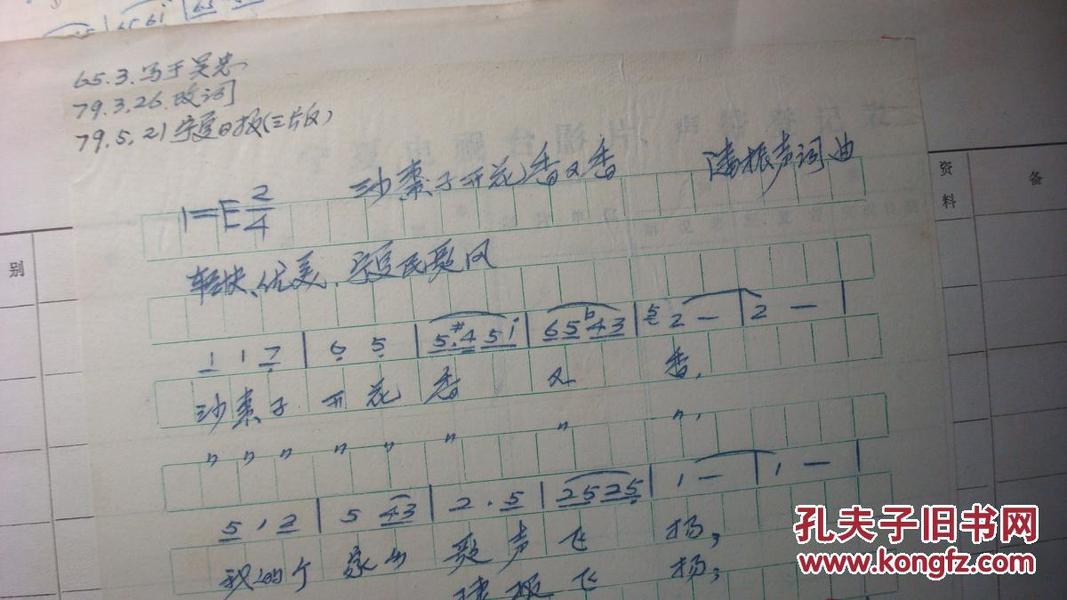 65.3.写于吴忠
79.3.26.改词
79.5.21宁夏日报(三版)
沙枣子开花香又香 潘振声词曲
1=E 2/4
轻快、优美、宁夏民歌风
1 1 7 | 6 5 | 5.#4 5 i | 6 5 b4 3 | 5 2 — | 2 — |
沙枣子 开花 香 又 香,
" " " " " " " ",
5 1 2 | 5 4 3 | 2 . 5 | 2 5 2 5 | 1 — | 1 — |
我的个 家乡 歌声 飞 扬;
飞 扬;
别
资料
备
孔夫子旧书网
www.kongfz.com